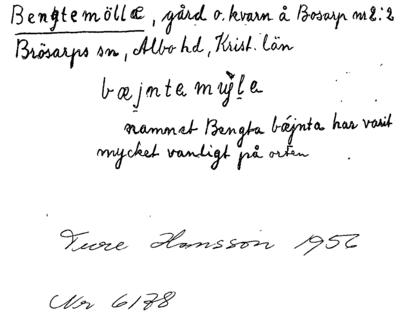 Bengtemölla, gård o. kvarn å Bosarp nr 2:2
Brösarps sn, Albo hd, Krist. län
bæjnta mỳla
namnet Bengta bǽjnta har varit
mycket vanligt på orten
Ture Hansson 1956
Nr 6178